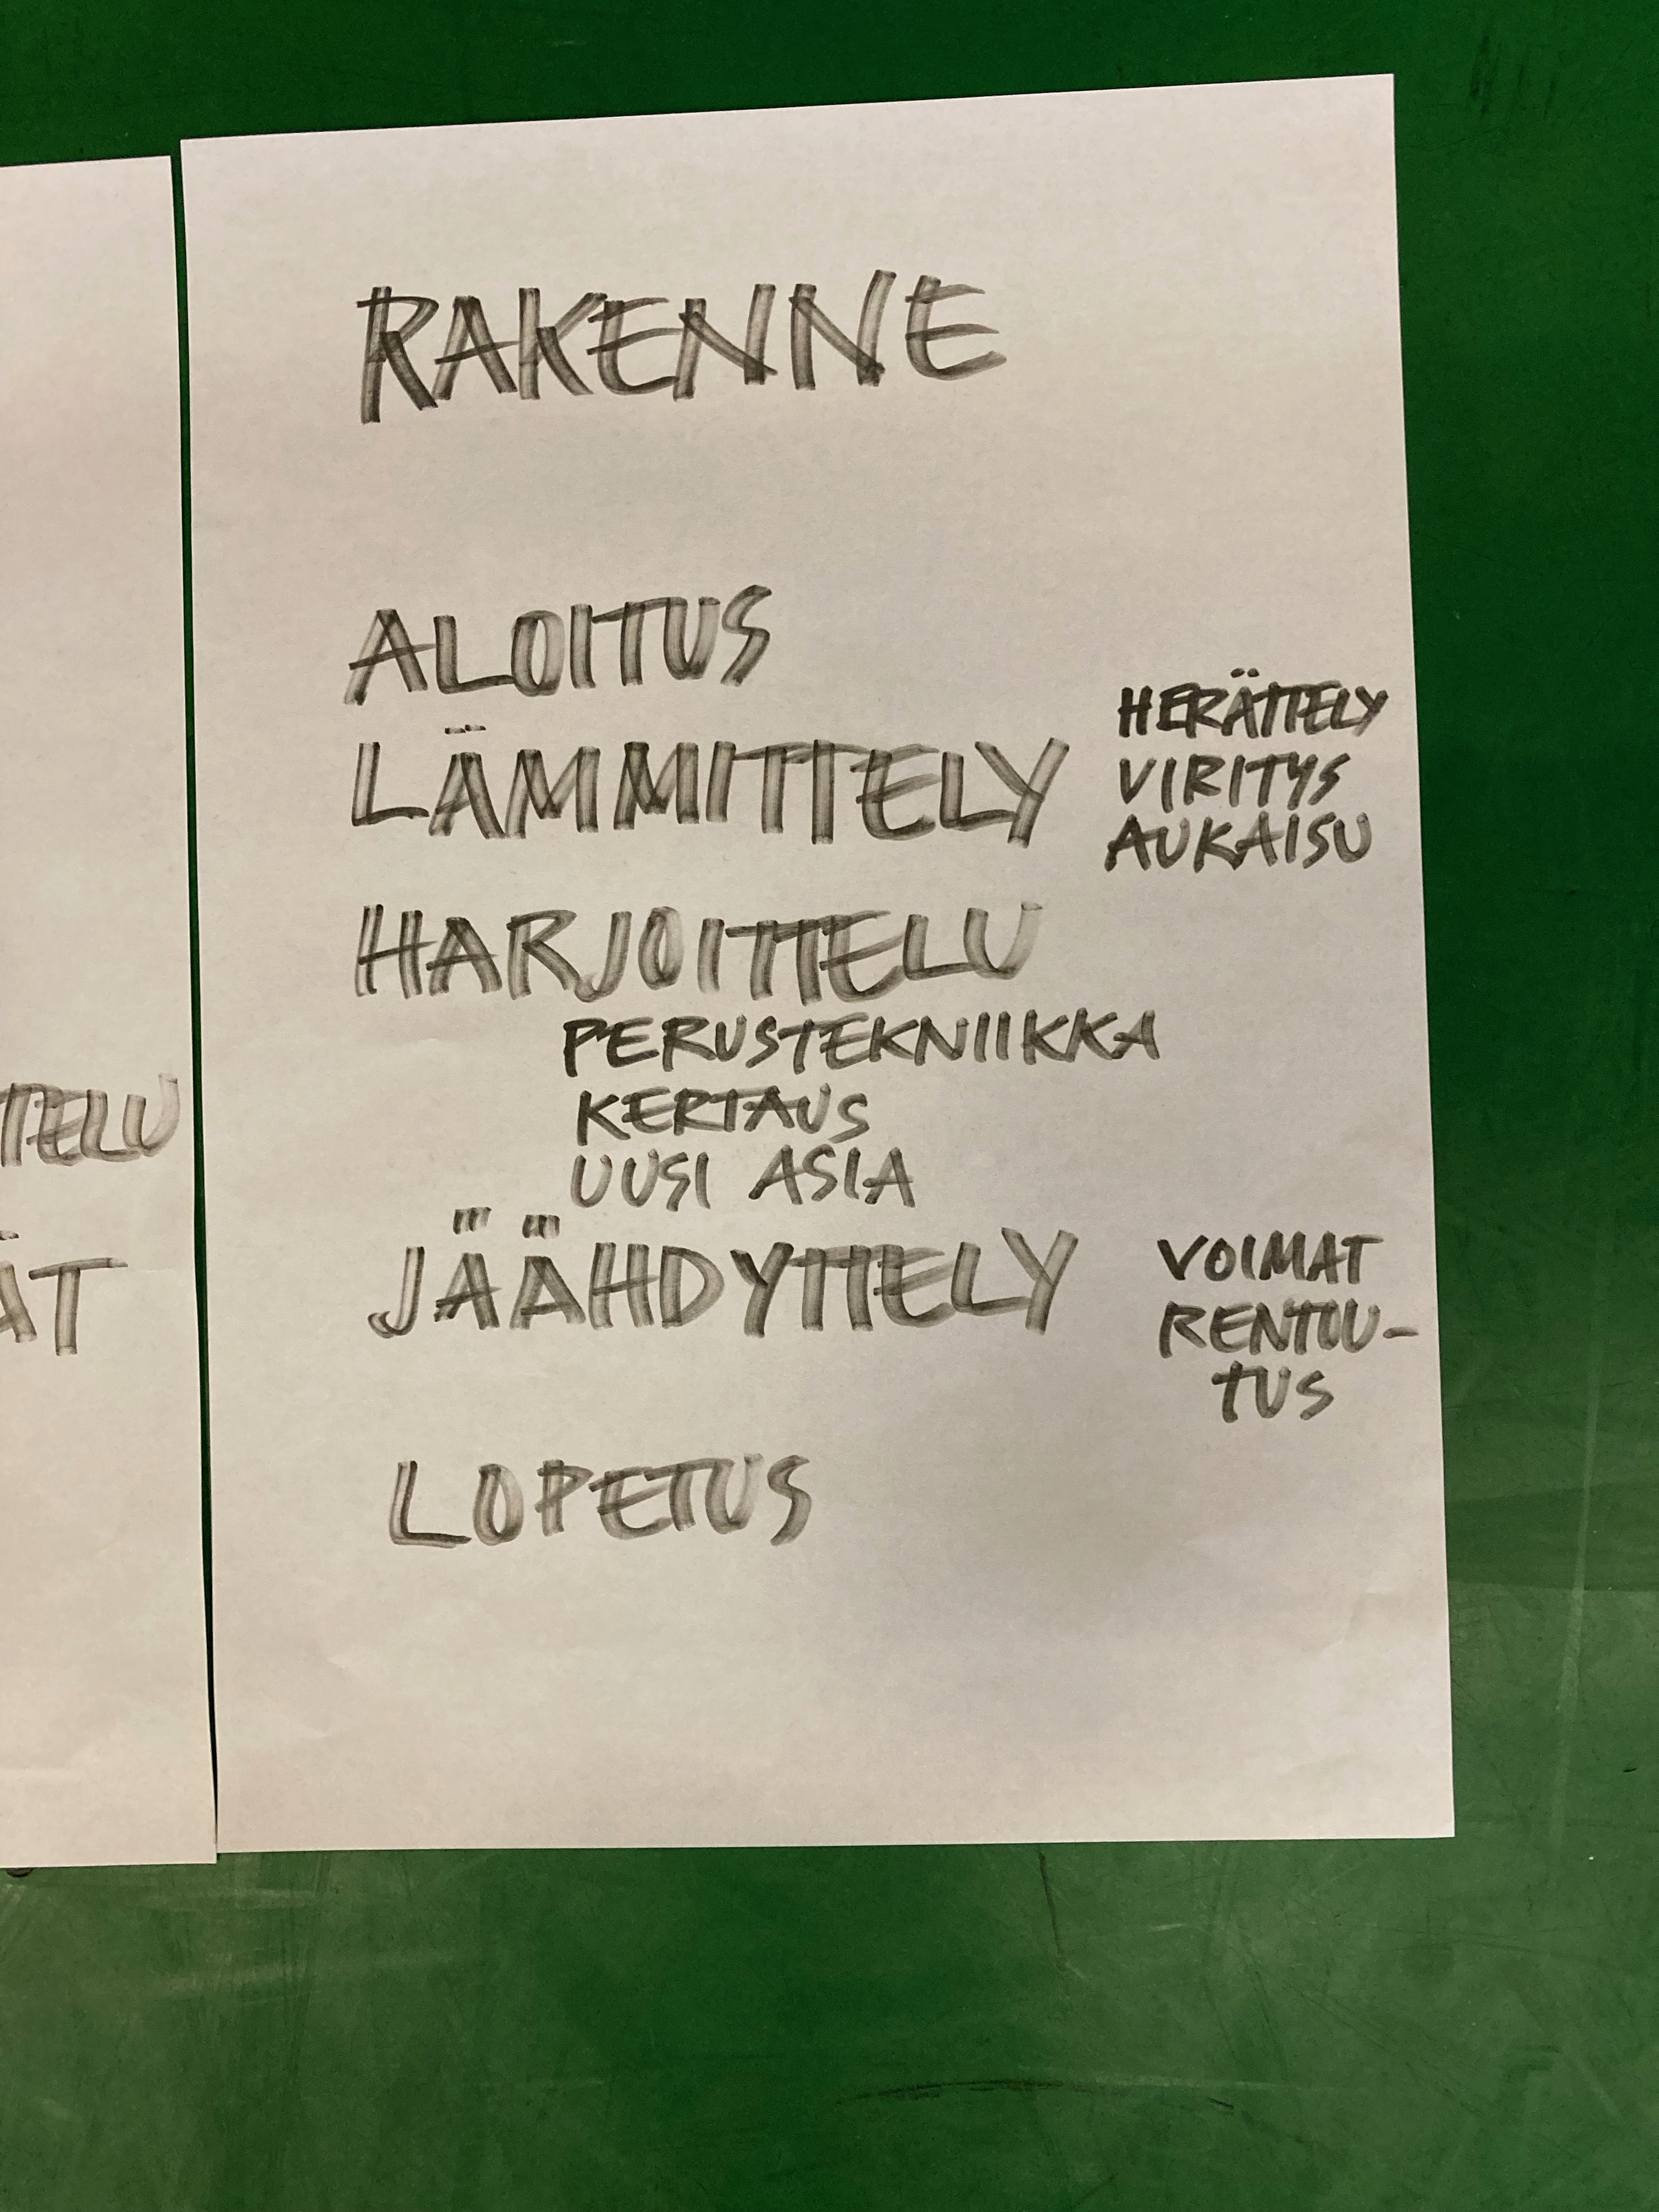 RAKENNE
ALOITUS
LÄMMITTELY
HERÄTTELY
VIRITYS
AUKAISU
HARJOITTELU
PERUSTEKNIIKKA
KERTAUS
UUSI ASIA
JÄÄHDYTTELY
VOIMAT
RENTOU-
TUS
LOPETUS
TELU
ÄT